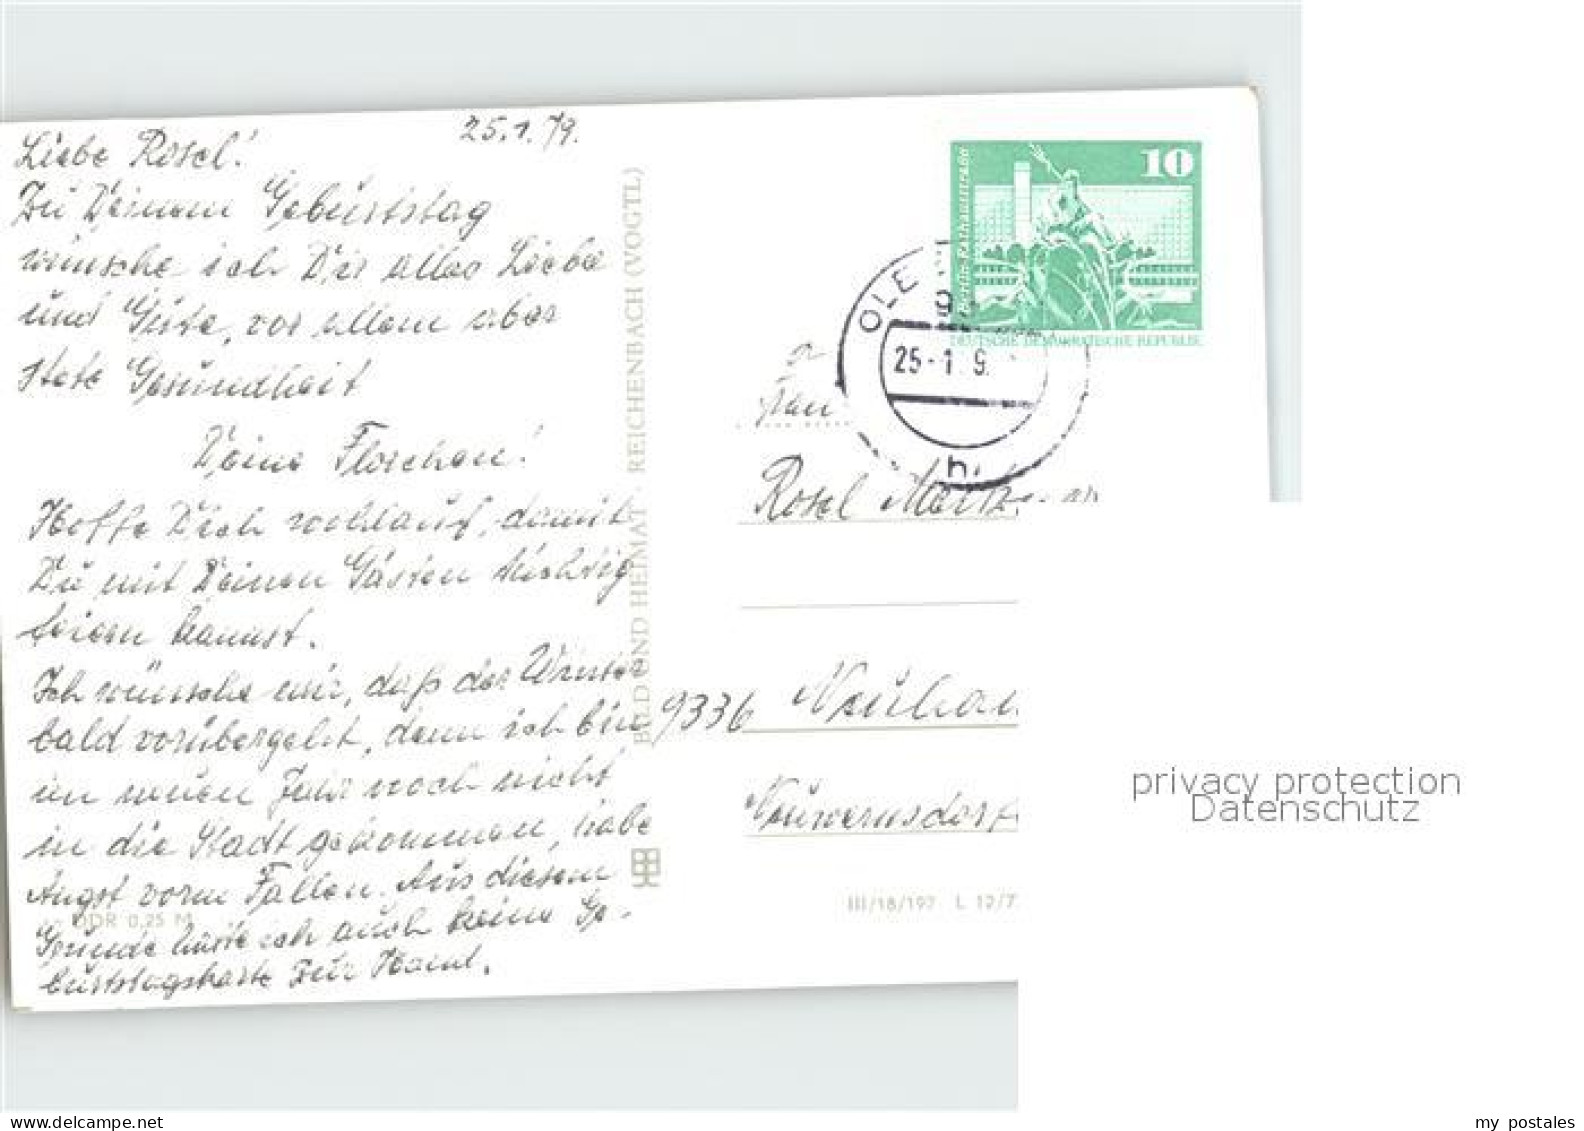 25.1.79.
Liebe Rosel!
Zu Deinem Geburtstag
wünsche ich Dir alles Liebe
und Gute, vor allem aber
stete Gesundheit
Deine Floschen!
Hoffe Dich wohlauf, damit
Du mit Deinen Gästen tüchtig
feiern kannst.
Ich wünsche mir, daß der Winter
bald vorübergeht, denn ich bin
im neuen Jahr noch nicht
in die Stadt gekommen, habe
Angst vorm Fallen. Aus diesem
Grunde hatte ich auch keine Ge-
burtstagskarte zur Hand.
DDR 0,25 M
BILD UND HEIMAT · REICHENBACH (VOGTL)
10
Berlin-Rathausstraße
DEUTSCHE DEMOKRATISCHE REPUBLIK
OLE
25-1 9
Frau
Rosel
9336 Neuhau
Neuwernsdorf
III/18/197 L 12/7
privacy protection
Datenschutz
my postales